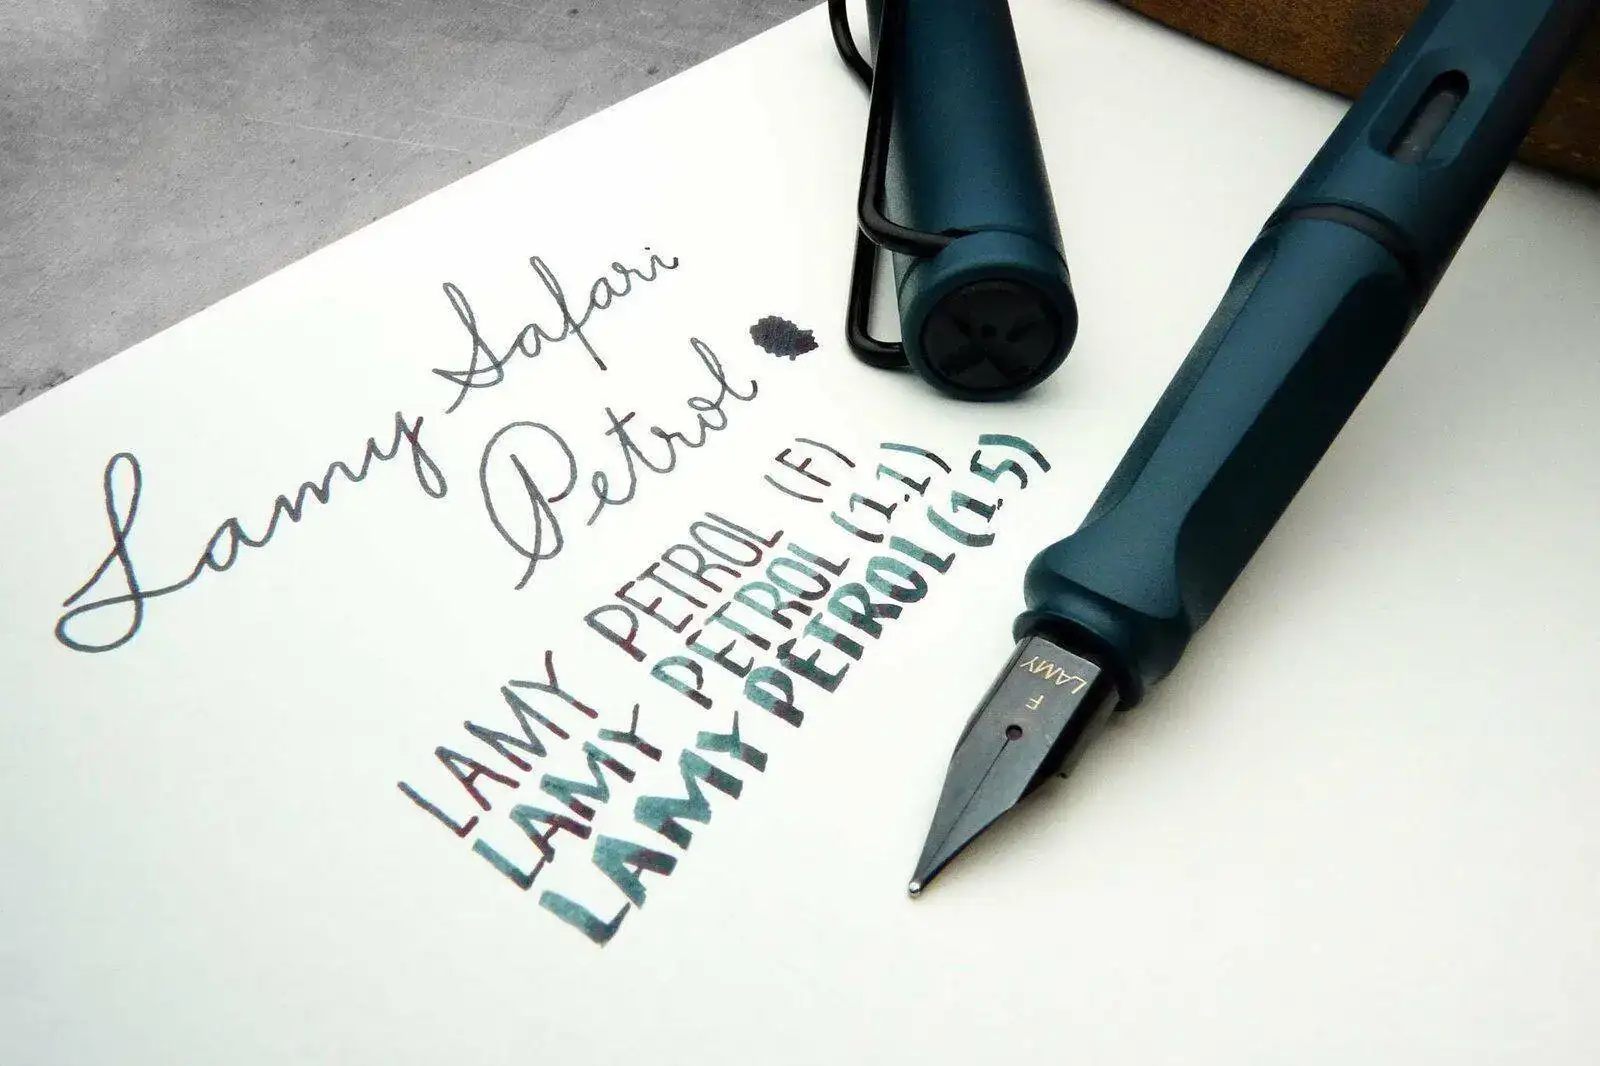 Lamy Safari
Petrol
LAMY PETROL (F)
LAMY PETROL (1.1)
LAMY PETROL (1.5)
LAMY
F